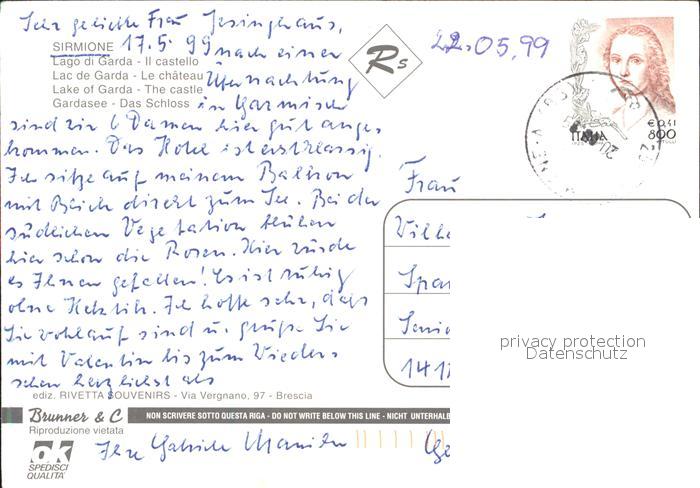 Sehr geliebte Frau Jesinghaus,
17.5.99 nach einer
Übernachtung
in Garmisch
sind wir 6 Damen hier gut ange-
kommen. Das Hotel ist erstklassig.
Ich sitze auf meinem Balkon
mit Blick direkt zum See. Bei der
südlichen Vegetation blühen
hier schon die Rosen. Hier würde
es Ihnen gefallen! Es ist ruhig
ohne Hektik. Ich hoffe sehr, daß
Sie wohlauf sind u. grüße Sie
mit Valentin bis zum Wieder-
sehen herzlichst als
Ihre Gabriele
SIRMIONE
Lago di Garda - Il castello
Lac de Garda - Le château
Lake of Garda - The castle
Gardasee - Das Schloss
Rs
22.05.99
ITALIA
€ 0,41
800
Frau
Wilhe
Spa
Senio
141
privacy protection
Datenschutz
ediz. RIVETTA SOUVENIRS - Via Vergnano, 97 - Brescia
Brunner & C
NON SCRIVERE SOTTO QUESTA RIGA - DO NOT WRITE BELOW THIS LINE - NICHT UNTERHALB
Riproduzione vietata
ok
SPEDISCI
QUALITA'